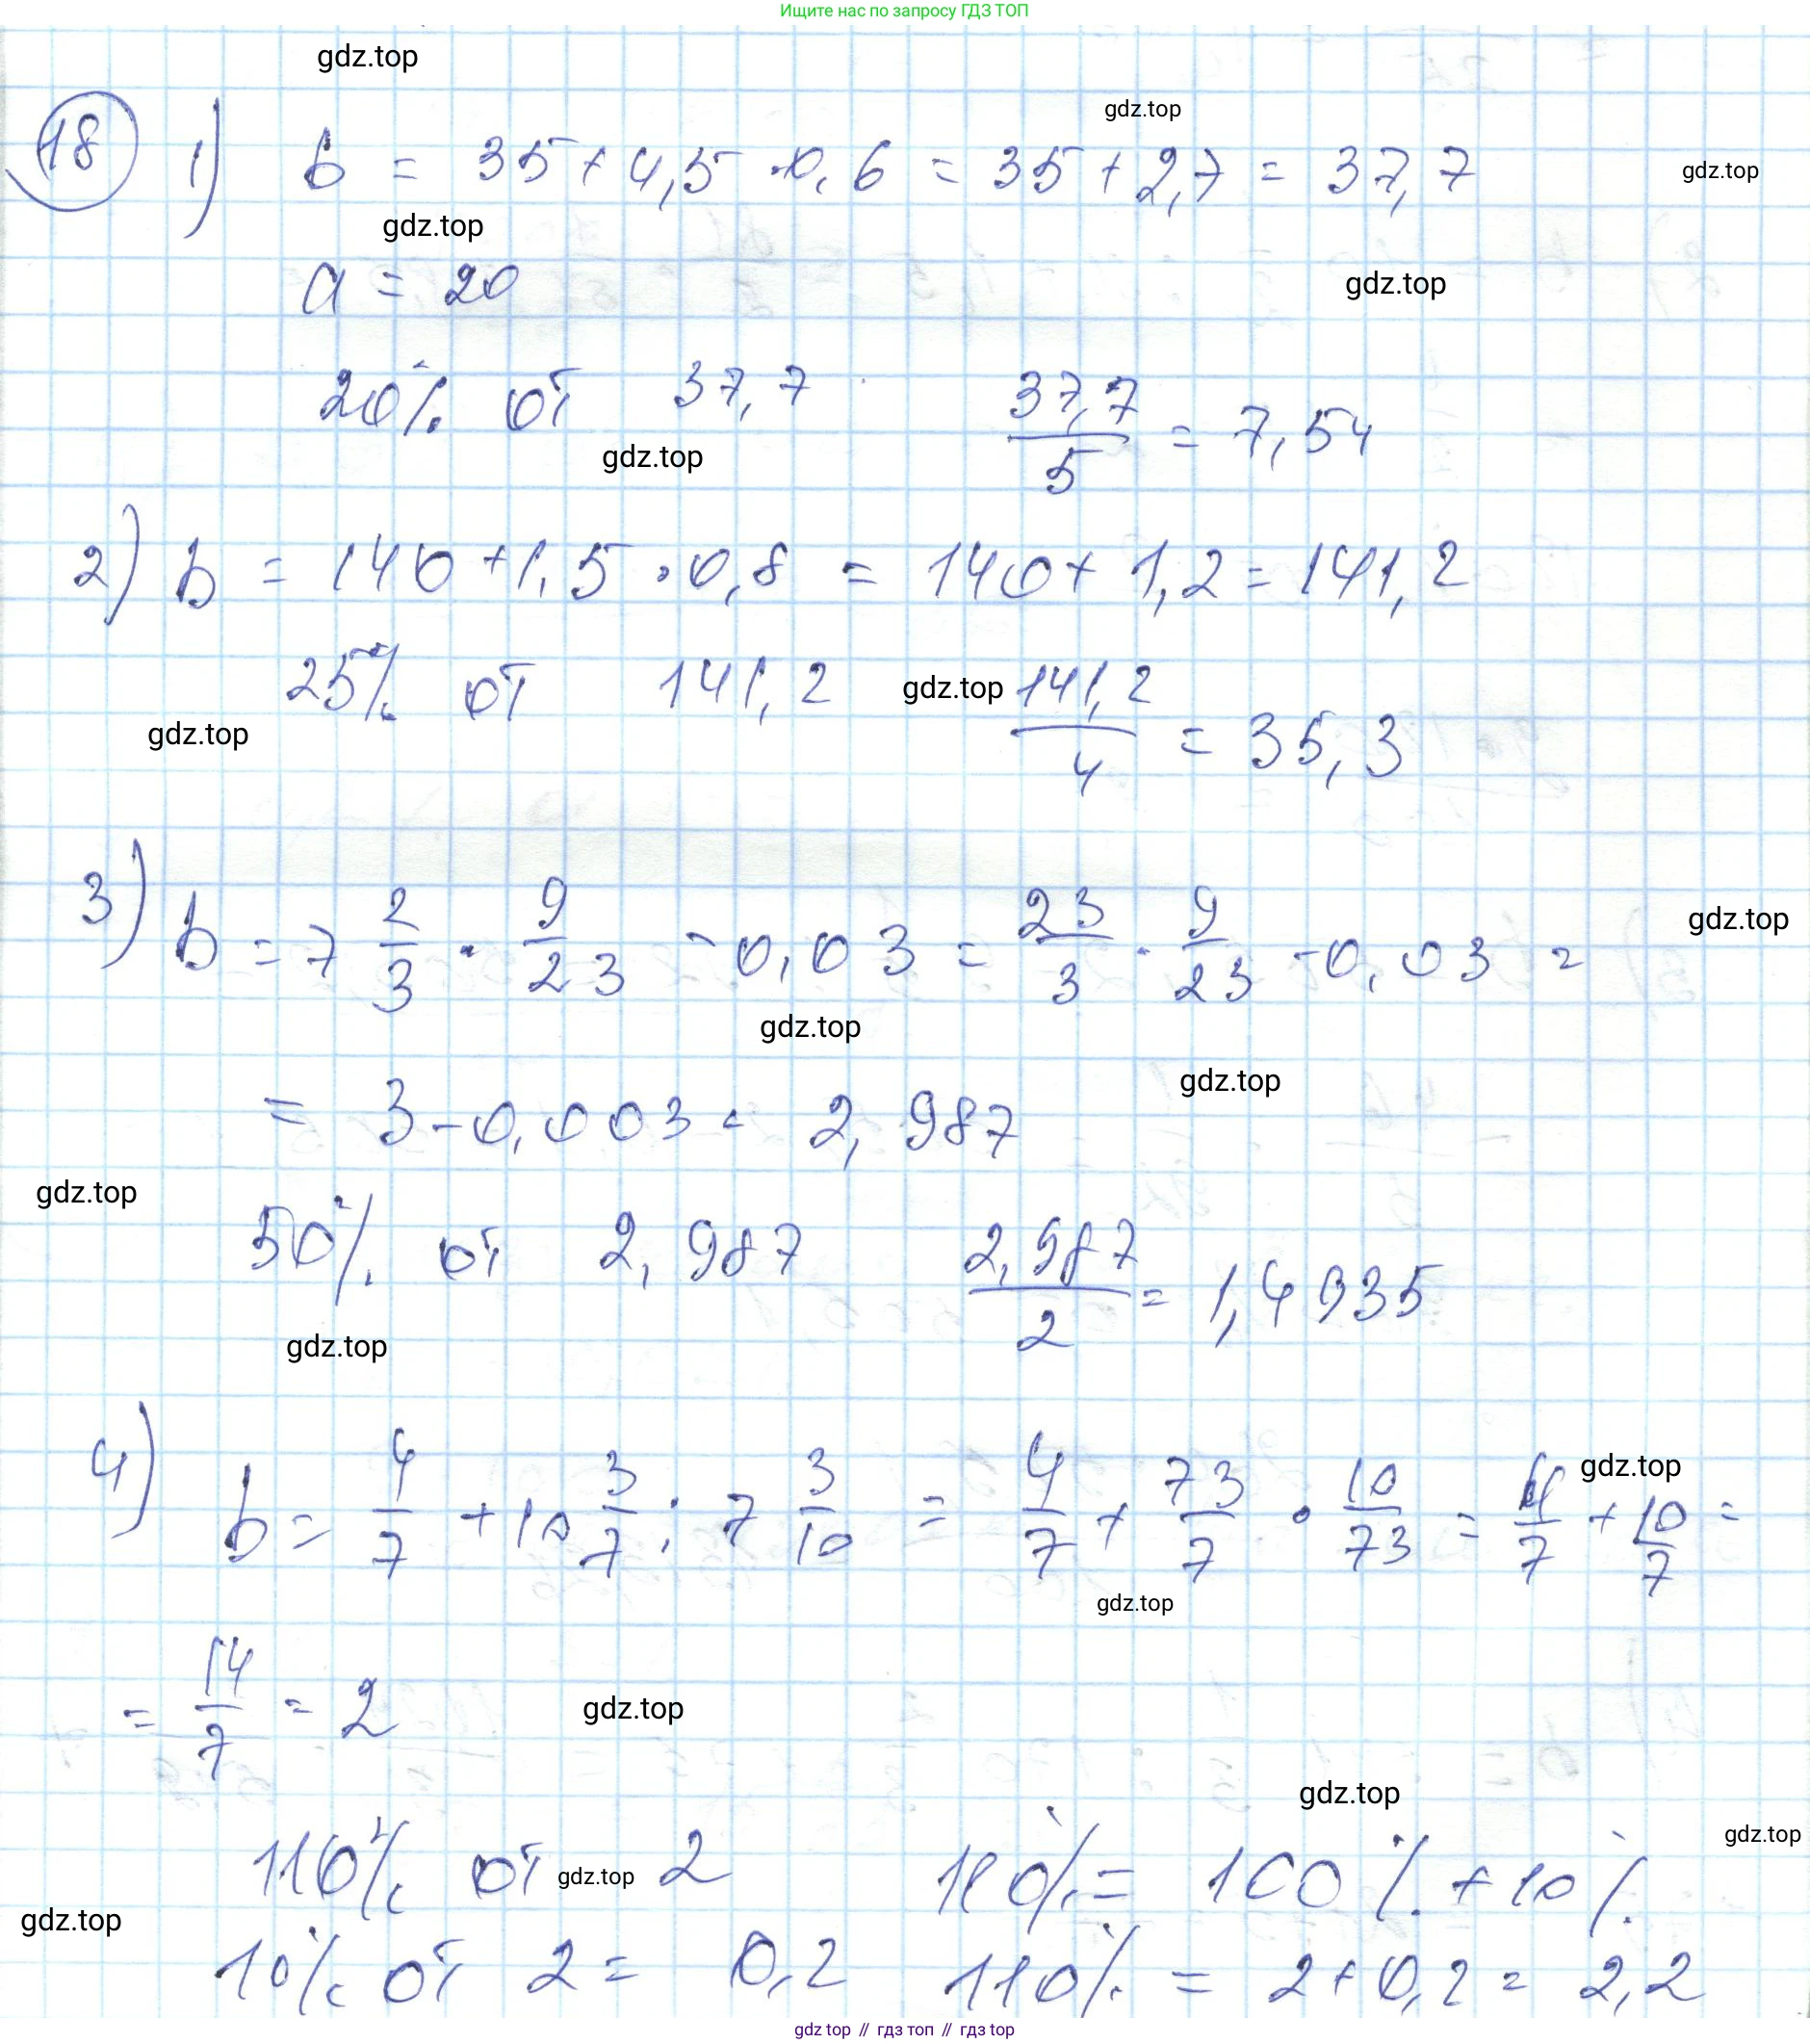 Ищите нас по запросу ГДЗ ТОП
gdz.top
gdz.top
18 1) b = 35 + 4,5 · 0,6 = 35 + 2,7 = 37,7
gdz.top
gdz.top
a = 20
gdz.top
20% от 37,7 37,7/5 = 7,54
gdz.top
2) b = 140 + 1,5 · 0,8 = 140 + 1,2 = 141,2
25% от 141,2 141,2/4 = 35,3
gdz.top
gdz.top
3) b = 7 2/3 · 9/23 - 0,03 = 23/3 · 9/23 - 0,03 =
gdz.top
gdz.top
gdz.top
= 3 - 0,003 = 2,987
gdz.top
50% от 2,987 2,987/2 = 1,4935
gdz.top
4) b = 4/7 + 10 3/7 : 7 3/10 = 4/7 + 73/7 · 10/73 = 4/7 + 10/7 =
gdz.top
gdz.top
= 14/7 = 2
gdz.top
gdz.top
gdz.top
110% от 2 110% = 100% + 10%
gdz.top
gdz.top
10% от 2 = 0,2 110% = 2 + 0,2 = 2,2
gdz.top // гдз топ // гдз top